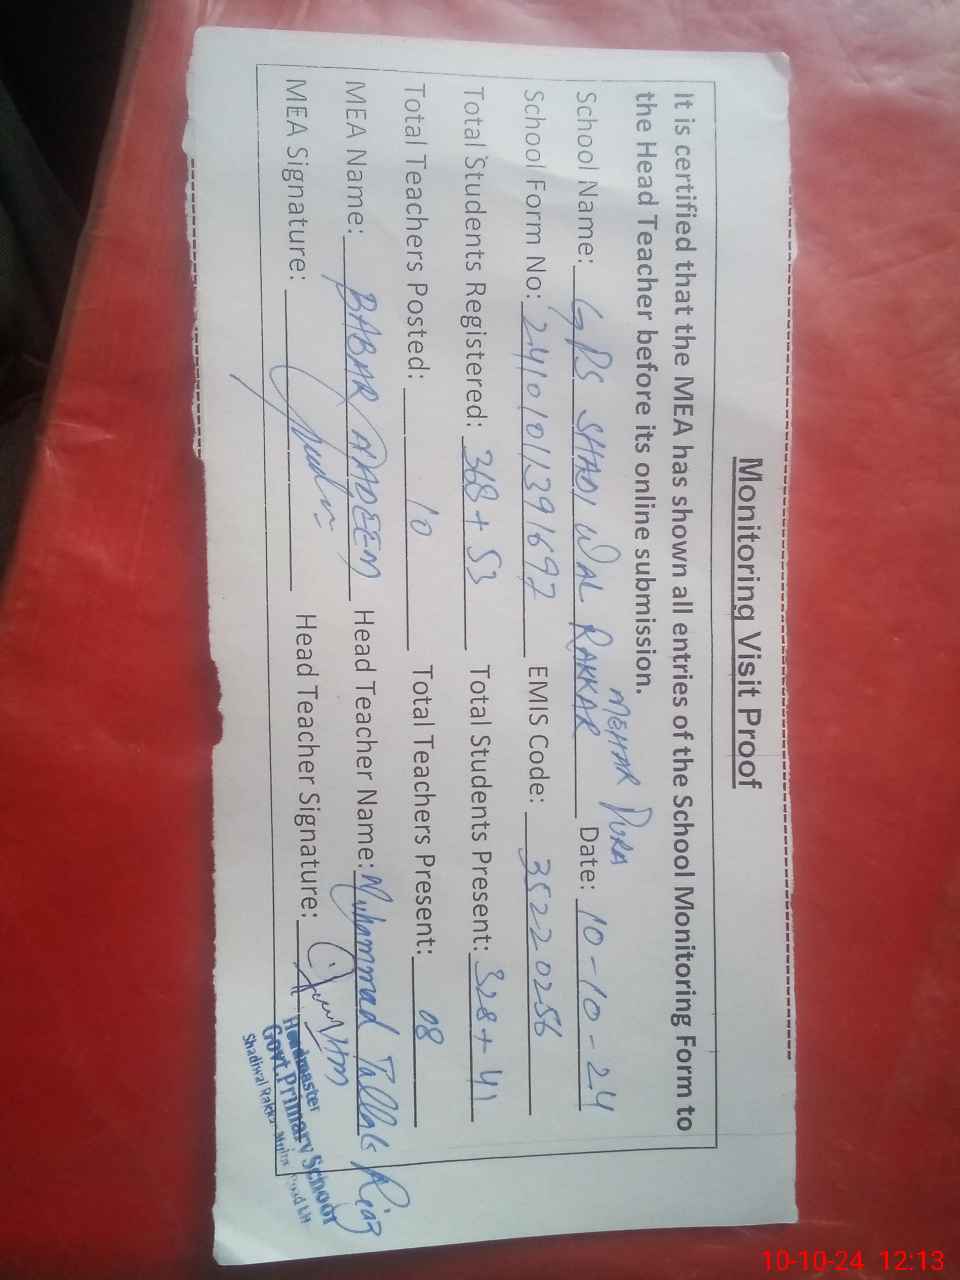 Monitoring Visit Proof
It is certified that the MEA has shown all entries of the School Monitoring Form to
the Head Teacher before its online submission.
MEHAR PURA
School Name: GPS SHADI WAL RAKKAR Date: 10-10-24
School Form No: 24101011391697 EMIS Code: 35220256
Total Students Registered: 368 + 53 Total Students Present: 328 + 41
Total Teachers Posted: 10 Total Teachers Present: 08
MEA Name: BABAR NADEEM Head Teacher Name: Muhammad Riaz
MEA Signature: Head Teacher Signature:
Headmaster
Govt. Primary School
Shadiwal Rakkar
10-10-24 12:13